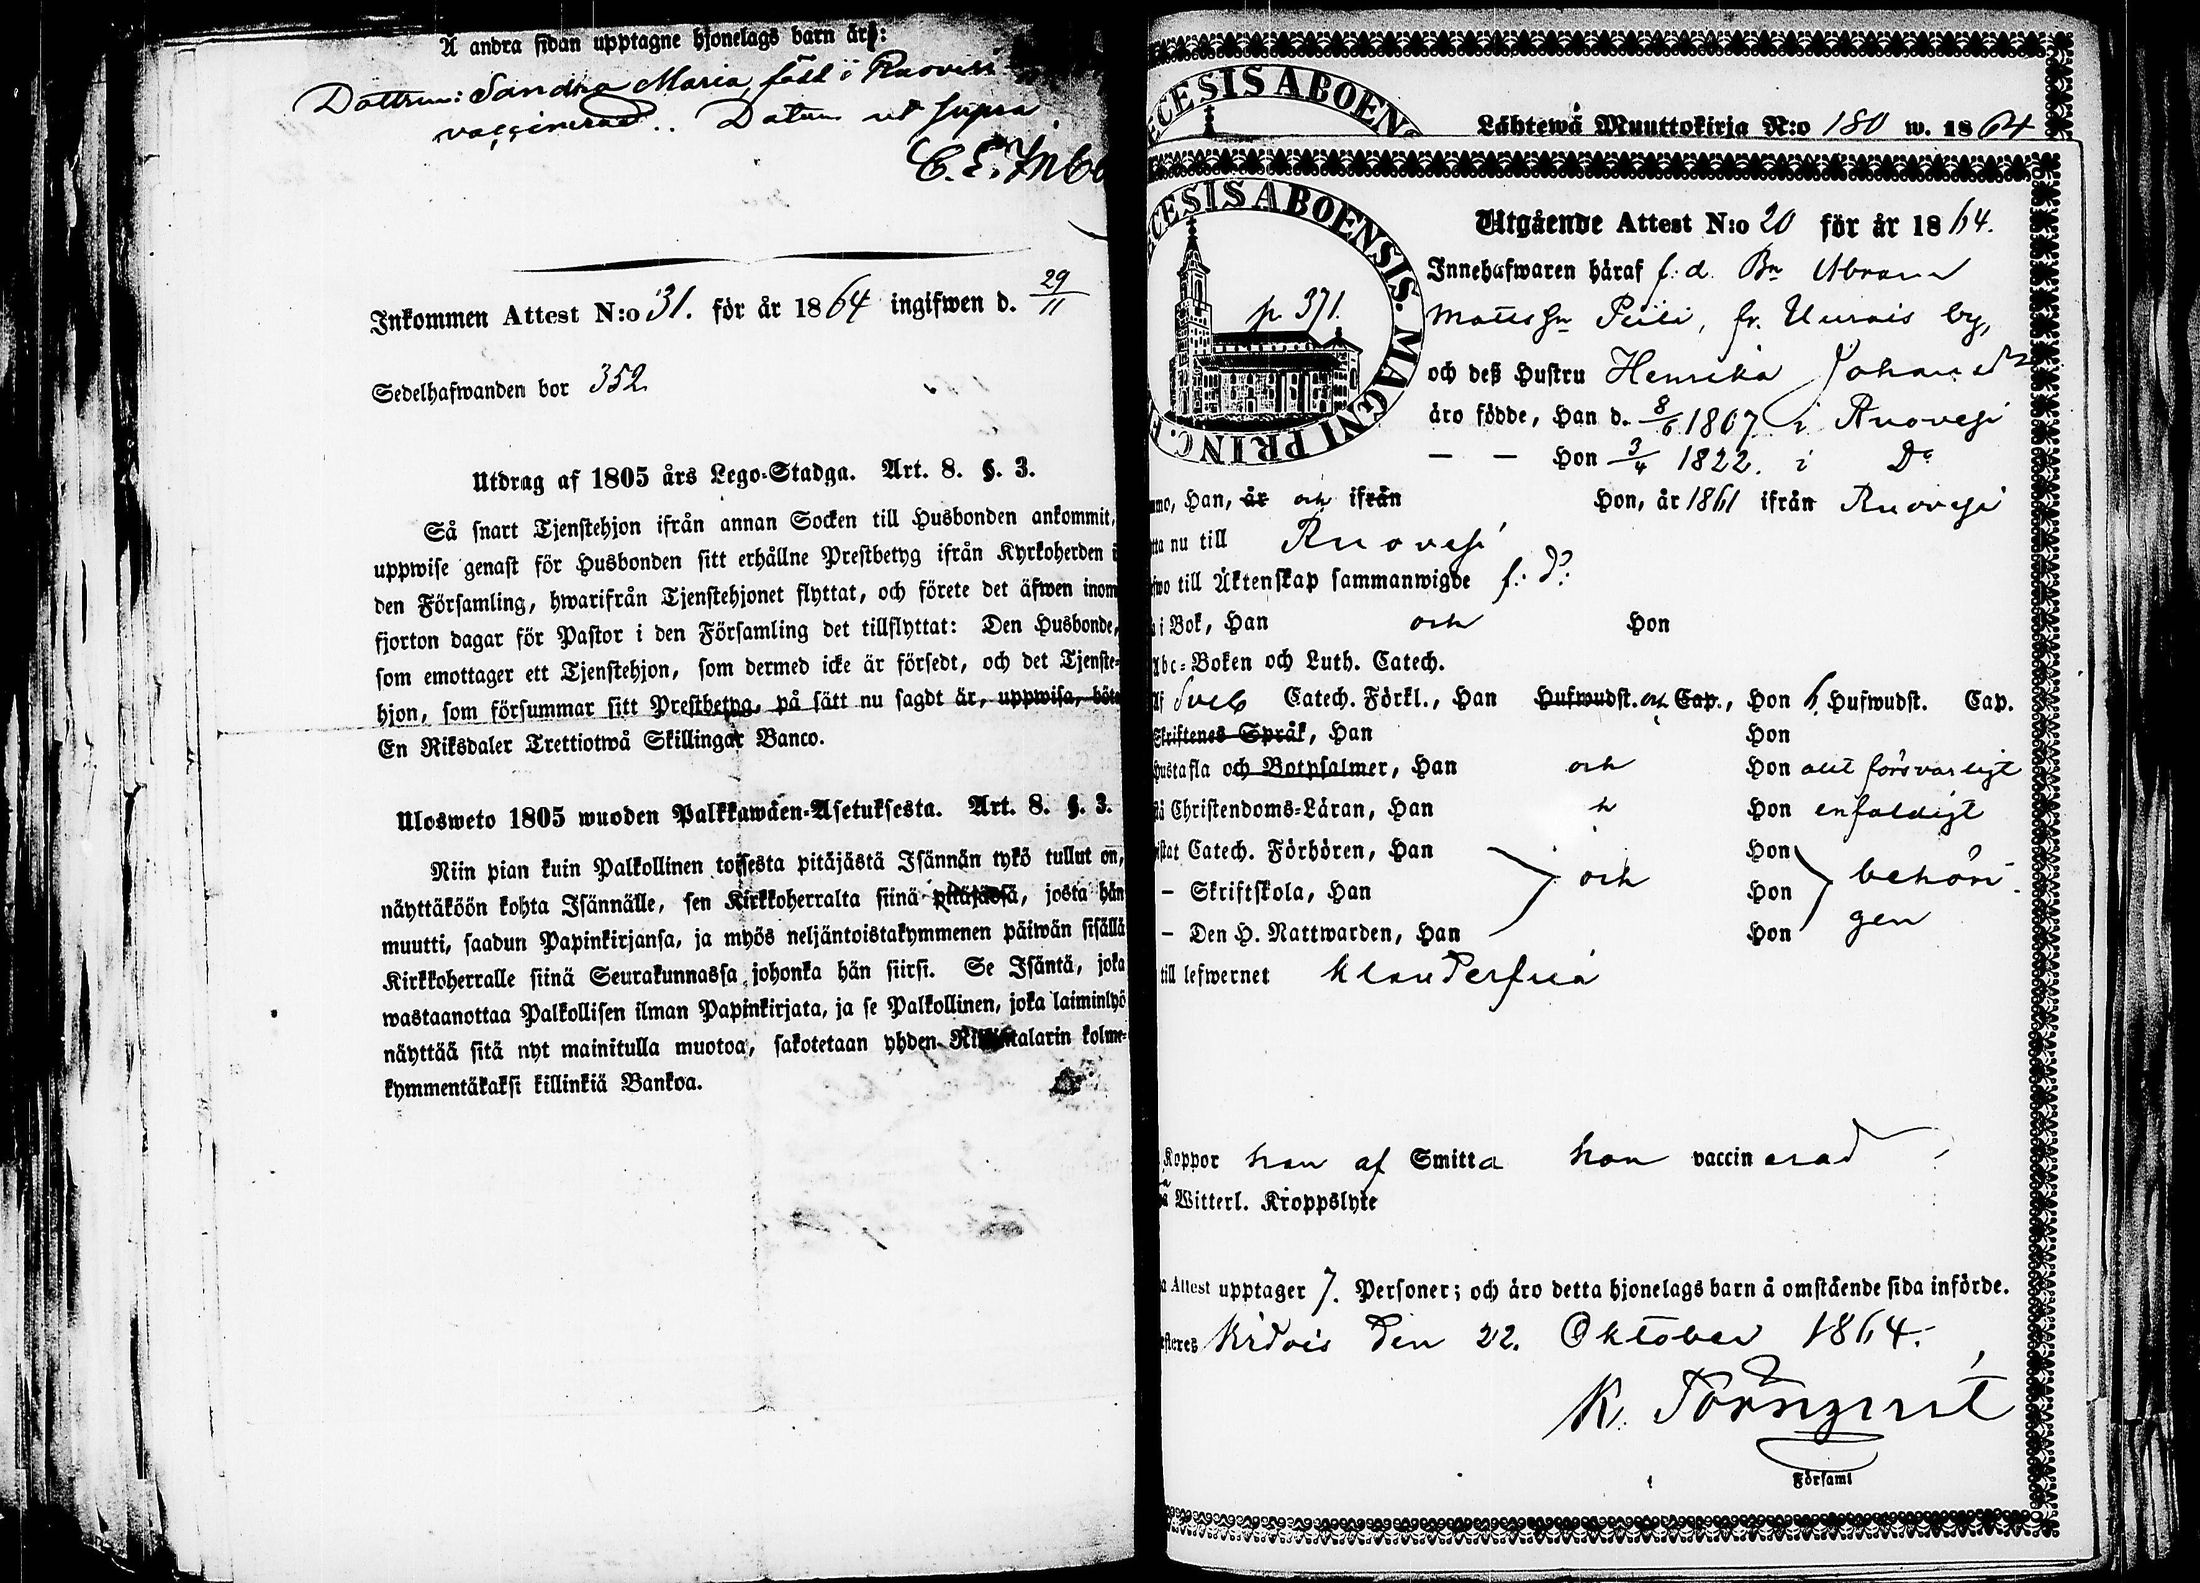 Å andra sidan upptagne hjonelags barn äro:
Dottren: Sandra Maria, född i Ruovesi
vaccinerad.. Datum ut supra
C. E.
Inkommen Attest N:o 31. för år 1864 ingifwen d. 29/11
Sedelhafwanden bor 352
Utdrag af 1805 års Lego-Stadga. Art. 8. §. 3.
Så snart Tjenstehjon ifrån annan Socken till Husbonden ankommit,
uppwise genast för Husbonden sitt erhållne Prestbetyg ifrån Kyrkoherden i
den Församling, hwarifrån Tjenstehjonet flyttat, och förete det äfwen inom
fjorton dagar för Pastor i den Församling det tillflyttat: Den Husbonde,
som emottager ett Tjenstehjon, som dermed icke är försedt, och det Tjenste-
hjon, som försummar sitt Prestbetyg, på sätt nu sagdt är, uppwisa, böte
En Riksdaler Trettiotwå Skillingar Banco.
Ulosweto 1805 wuoden Palkkawäen-Asetuksesta. Art. 8. §. 3.
Niin pian kuin Palkollinen toisesta pitäjästä Isännän tykö tullut on,
näyttäköön kohta Isännälle, sen Kirkkoherralta siinä pitäjässä, josta hän
muutti, saadun Papinkirjansa, ja myös neljäntoistakymmenen päiwän sisällä
Kirkkoherralle siinä Seurakunnassa johonka hän siirsi. Se Isäntä, joka
wastaanottaa Palkollisen ilman Papinkirjata, ja se Palkollinen, joka laiminlyö
näyttää sitä nyt mainitulla muotoa, sakotetaan yhden Riksitalarin kolme-
kymmentäkaksi killinkiä Bankoa.
CESIS ABOEN
Lähtewä Muuttokirja N:o 180 w. 1864
CESIS ABOENSIS. MAGNI PRINC.
p. 371.
Utgående Attest N:o 20 för år 1864.
Innehafwaren häraf f. d. Bn Abram
Matts Sn Piili, fr. Uurais by,
och deß Hustru Henrika Johansdr
äro födde, Han d. 8/6 1807 i Ruovesi
— — Hon 3/4 1822. i Do
Han, är och ifrån Hon, är 1861 ifrån Ruovesi
nu till Ruovesi
till Äktenskap sammanwigde f. d:
i Bok, Han och Hon
Abc-Boken och Luth. Catech.
Af Sveb Catech. Förkl., Han Hufwudst. och Cap., Hon 6 Hufwudst. Cap.
Skriftenes Språk, Han Hon
Hustafla och Botpsalmer, Han och Hon allt försvarligt
Christendoms-Läran, Han Hon enfaldigt
Catech. Förhören, Han Hon
— Skriftskola, Han och Hon behöri-
— Den H. Nattwarden, Han Hon gen
till lefwernet klanderfria
Koppor han af Smitta hon vaccinerad
Witterl. Kroppslyte
Attest upptager 7. Personer; och äro detta hjonelags barn å omstående sida införde.
den 22. Oktober 1864.
K. Törnqvist
Församl